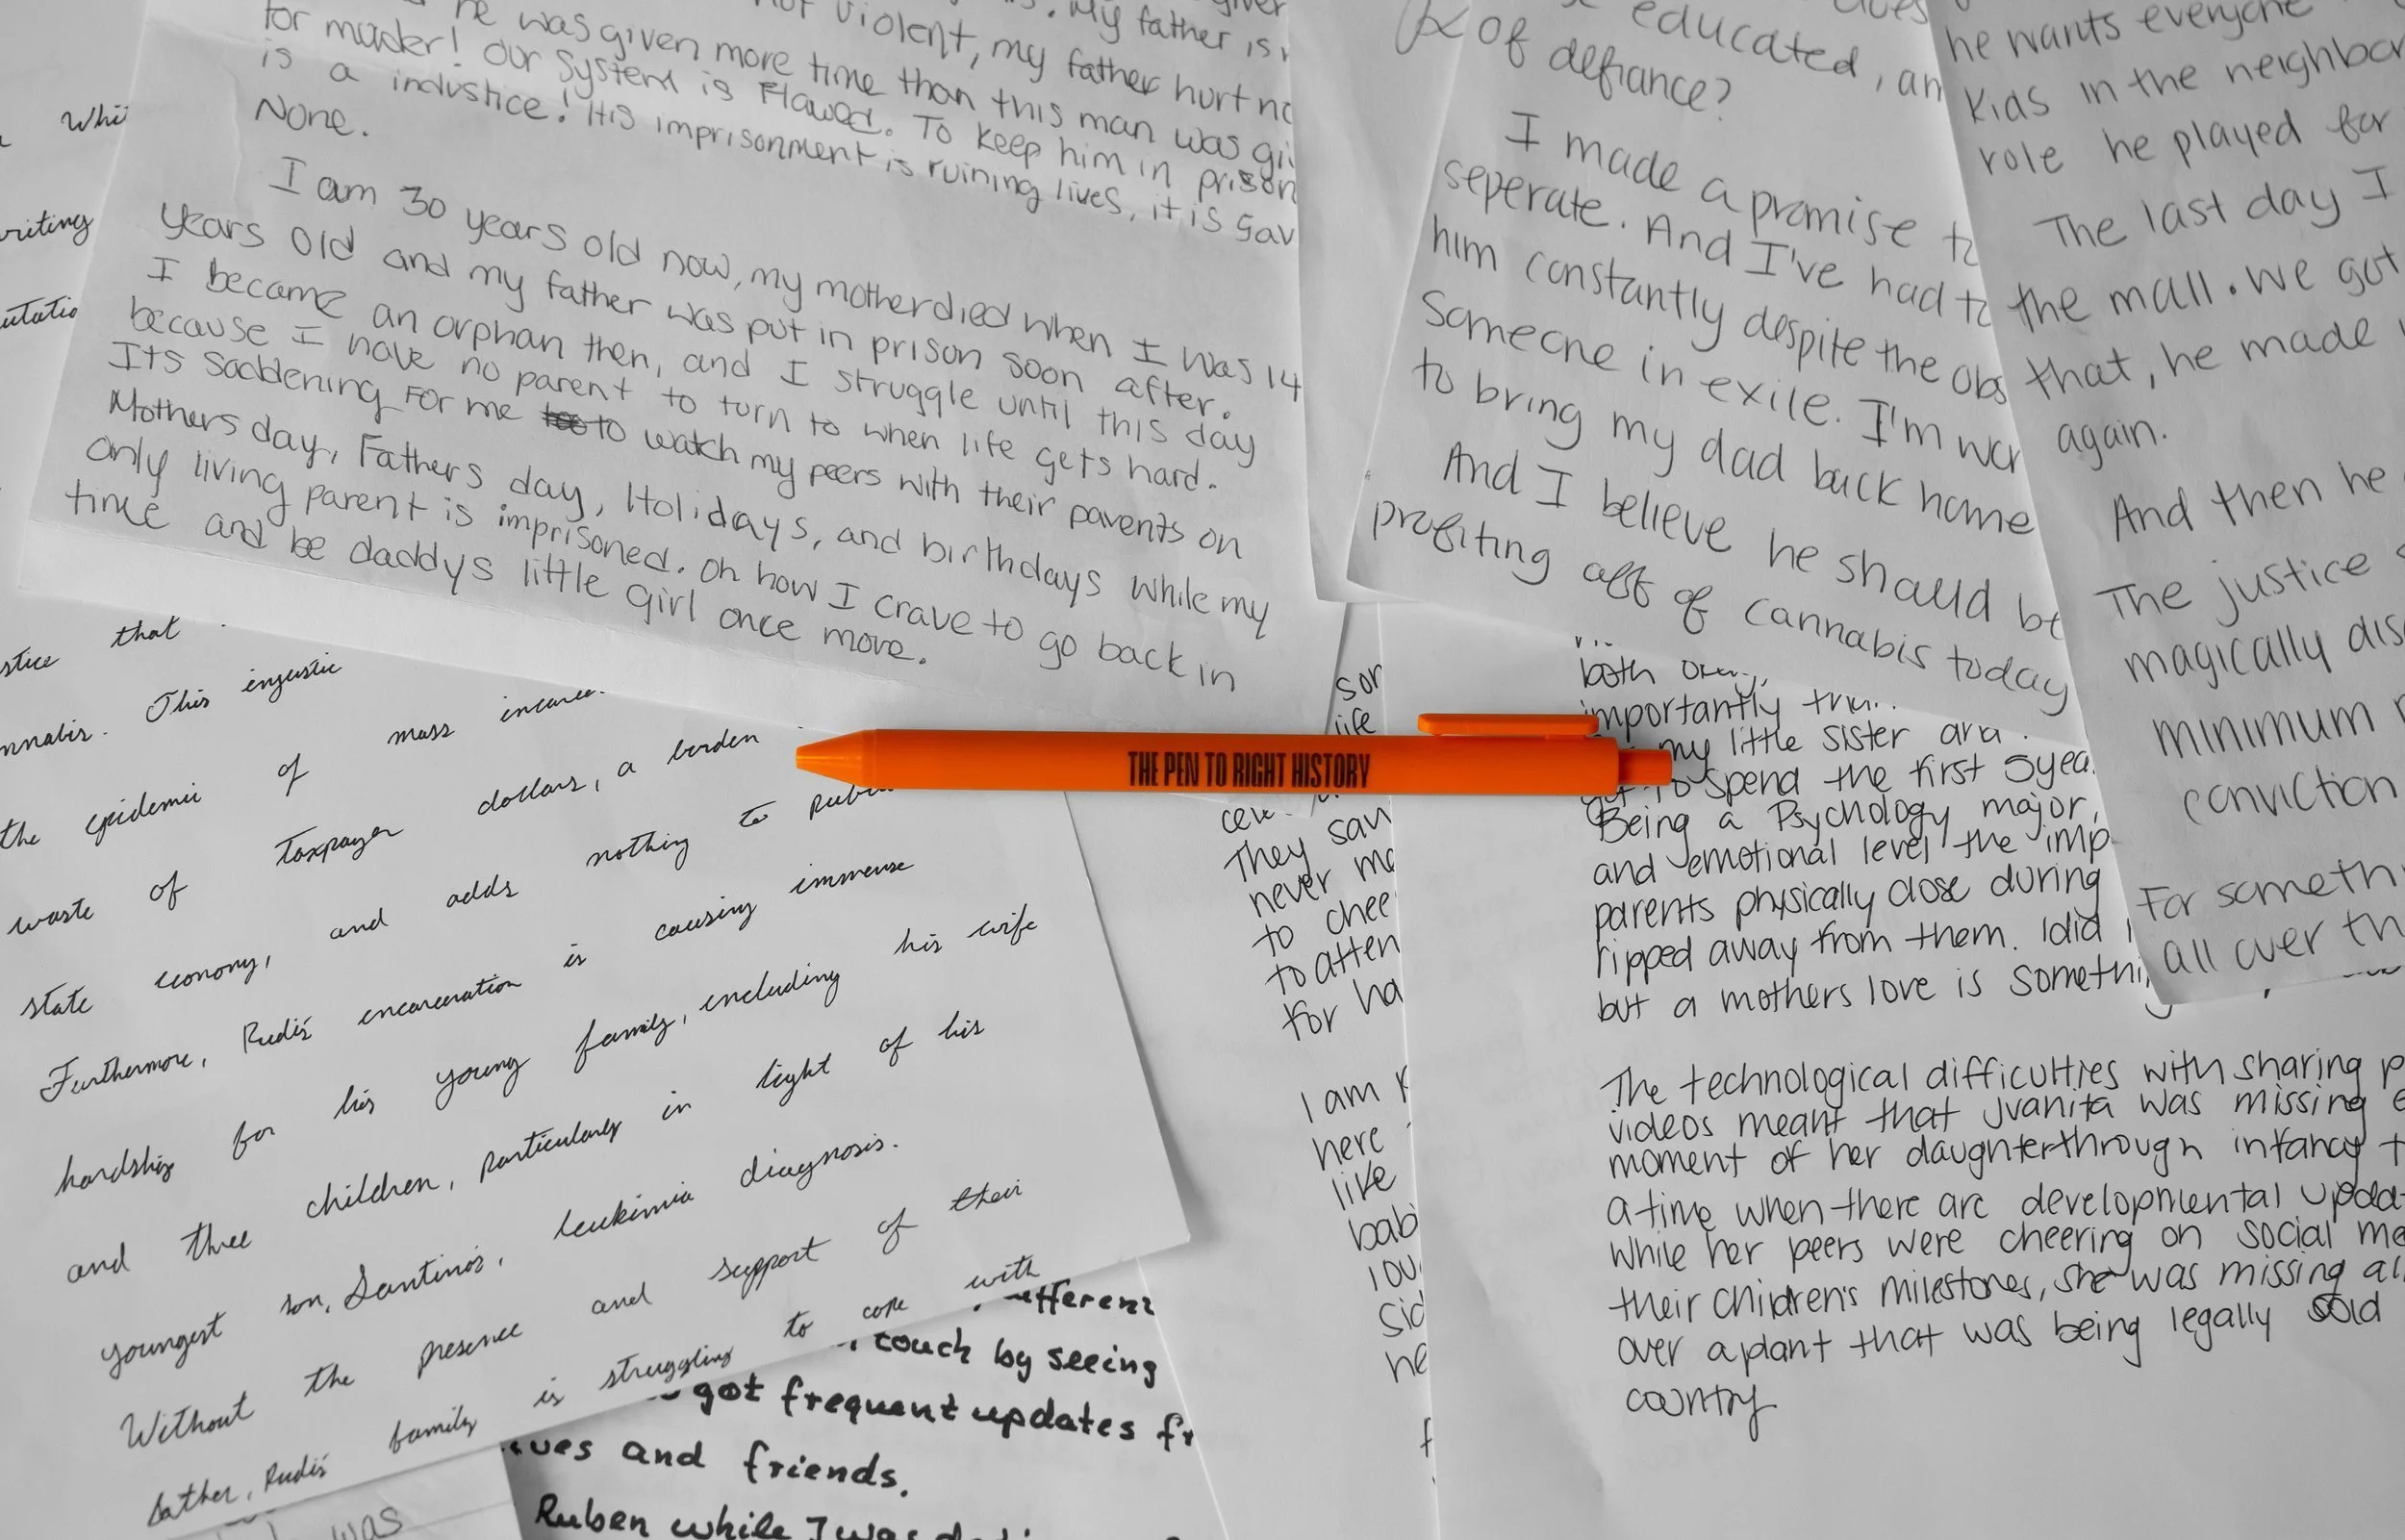 he was given more time than this man was gi
not violent, my father hurt no
My father is
for murder! Our System is Flawed. To keep him in prison
is a industice! His imprisonment is ruining lives, it is Gav
None.
I am 30 years old now, my mother died when I was 14
years old and my father was put in prison soon after.
I became an orphan then, and I struggle until this day
because I have no parent to turn to when life gets hard.
Its saddening for me to watch my peers with their parents on
Mothers day, Fathers day, Holidays, and birthdays while my
only living parent is imprisoned. Oh how I crave to go back in
time and be daddys little girl once more.
Whi
riting
utatio
educated, an
of defiance?
I made a promise to
seperate. And I've had to
him constantly despite the obs
Someone in exile. I'm wor
to bring my dad back home
And I believe he should be
profiting off of cannabis today
he wants everyone
kids in the neighbor
role he played for
The last day I
the mall. We got
that, he made
again.
And then he
The justice s
magically dis
minimum
conviction
For someth
all over th
THE PEN TO RIGHT HISTORY
stice that
nnabis. This injustic
the epidemic of mass incarce
waste of taxpayer dollars, a burden
state economy, and adds nothing to public
Furthermore, Rudi's incarceration is causing immense
hardship for his young family, including his wife
and three children, particularly in light of his
youngest son, Santino's, leukimia diagnosis.
Without the presence and support of their
father, Rudi's family is struggling to cope with
fferent
touch by seeing
got frequent updates fr
ves and friends.
Ruben while I was
was
son
life
They sav
never mo
to chee
to atten
for ha
I am k
here
like
bab
lou
sid
he
both
importantly
my little sister and
to spend the first 5 yea
Being a Psychology major,
and emotional level the imp
parents physically close during
ripped away from them. I did
but a mothers love is somethi
The technological difficulties with sharing p
videos meant that Jvanita was missing e
moment of her daughter through infancy t
a time when there are developmental updat
While her peers were cheering on social me
their children's milestones, she was missing al
over a plant that was being legally sold
country